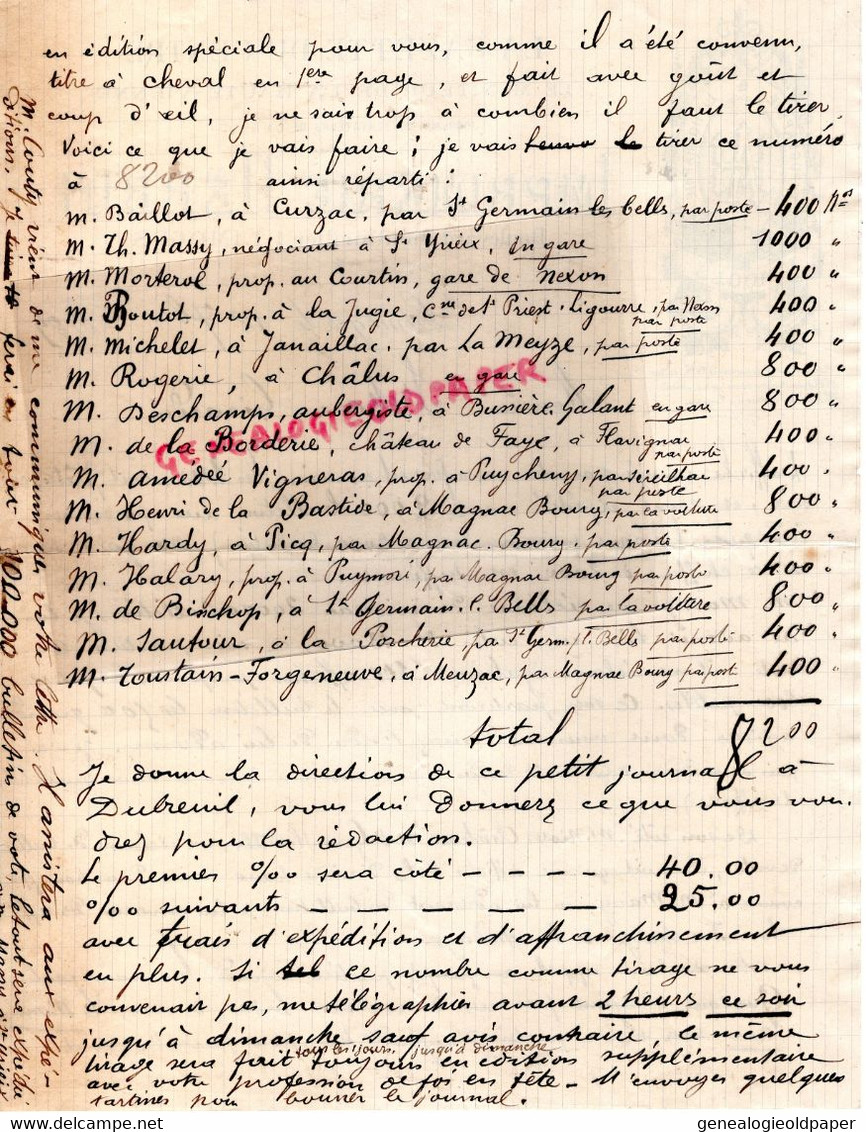 en édition spéciale pour vous, comme il a été convenu,
titre à cheval en 1ere page, et fait avec goût et
coup d'œil, je ne sais trop à combien il faut le tirer.
Voici ce que je vais faire ; je vais le tirer ce numéro
à 8200 ainsi réparti :
M. Baillot, à Curzac, par St Germain les bells, par poste - 400 
M. Th. Massy, négociant à St Yrieix, en gare 1000 "
M. Morterol, prop. au Courtin, gare de Nexon 400 "
M. Boutot, prop. à la Jugie, Cne de St Priest-Ligourre, par Nexon par poste 400 "
M. Michelet, à Janailhac, par La Meyze, par poste 400 "
M. Rogerie, à Châlus en gare 800 "
M. Deschamps, aubergiste, à Bussière-Galant en gare 800 "
M. de la Borderie, château de Faye, à Flavignac par poste 400 "
M. Amédée Vigneras, prop. à Puycheny, par Séreilhac par poste 400 "
M. Henri de la Bastide, à Magnac Bourg, par la voiture 800 "
M. Hardy, à Picq, par Magnac-Bourg, par poste 400 "
M. Halary, prop. à Puymori, par Magnac Bourg par poste 400 "
M. de Binchop, à St Germain l. Bells par la voiture 800 "
M. Sautour, à la Porcherie, par St Germ. l. Bells par poste 400 "
M. Toustain-Forgeneuve, à Meuzac, par Magnac Bourg par poste 400 "
total 8200
Je donne la direction de ce petit journal à
Dubreuil, vous lui donnerez ce que vous vou-
drez pour la rédaction.
Le premier %oo sera côté - - - - 40.00
%oo suivants - - - - - - 25.00
avec frais d'expédition et d'affranchissement
en plus. Si ce nombre comme tirage ne vous
convenait pas, me télégraphier avant 2 heures ce soir
jusqu'à dimanche sauf avis contraire, le même
tirage sera fait tous les jours, jusqu'à dimanche toujours en édition supplémentaire
avec votre profession de foi en tête - M'envoyer quelques
tartines pour bourrer le journal.
M. Couty vient de me communiquer votre lettre. Il assistera aux expé-
ditions. Je ferai en tirer 100.000 bulletins de vote, le tout sera expédié
à M. Massy à St Yrieix
genealogieoldpaper
GENEALOGIEOLDPAPER